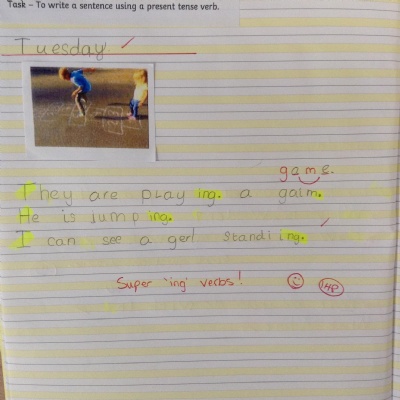 Task – To write a sentence using a present tense verb.
Tuesday
game.
They are play ing. a galm.
He is Jump ing.
I can see a gerl standi ing.
Super 'ing' verbs!
1HP